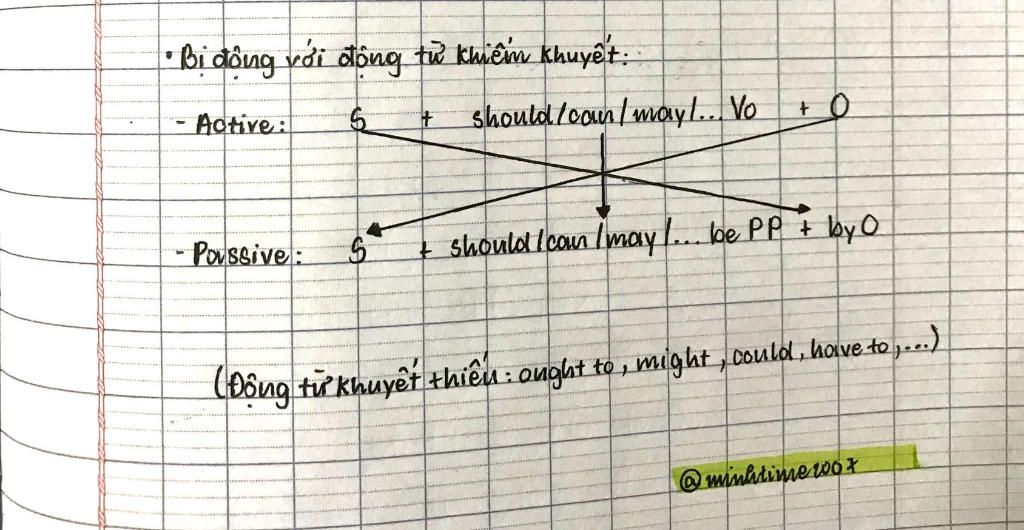 • Bị động với động từ khiếm khuyết:
- Active: S + should/can/may/... Vo + O
- Passive: S + should/can/may/... be PP + by O
(Động từ khuyết thiếu: ought to, might, could, have to,...)
@minhtime2007